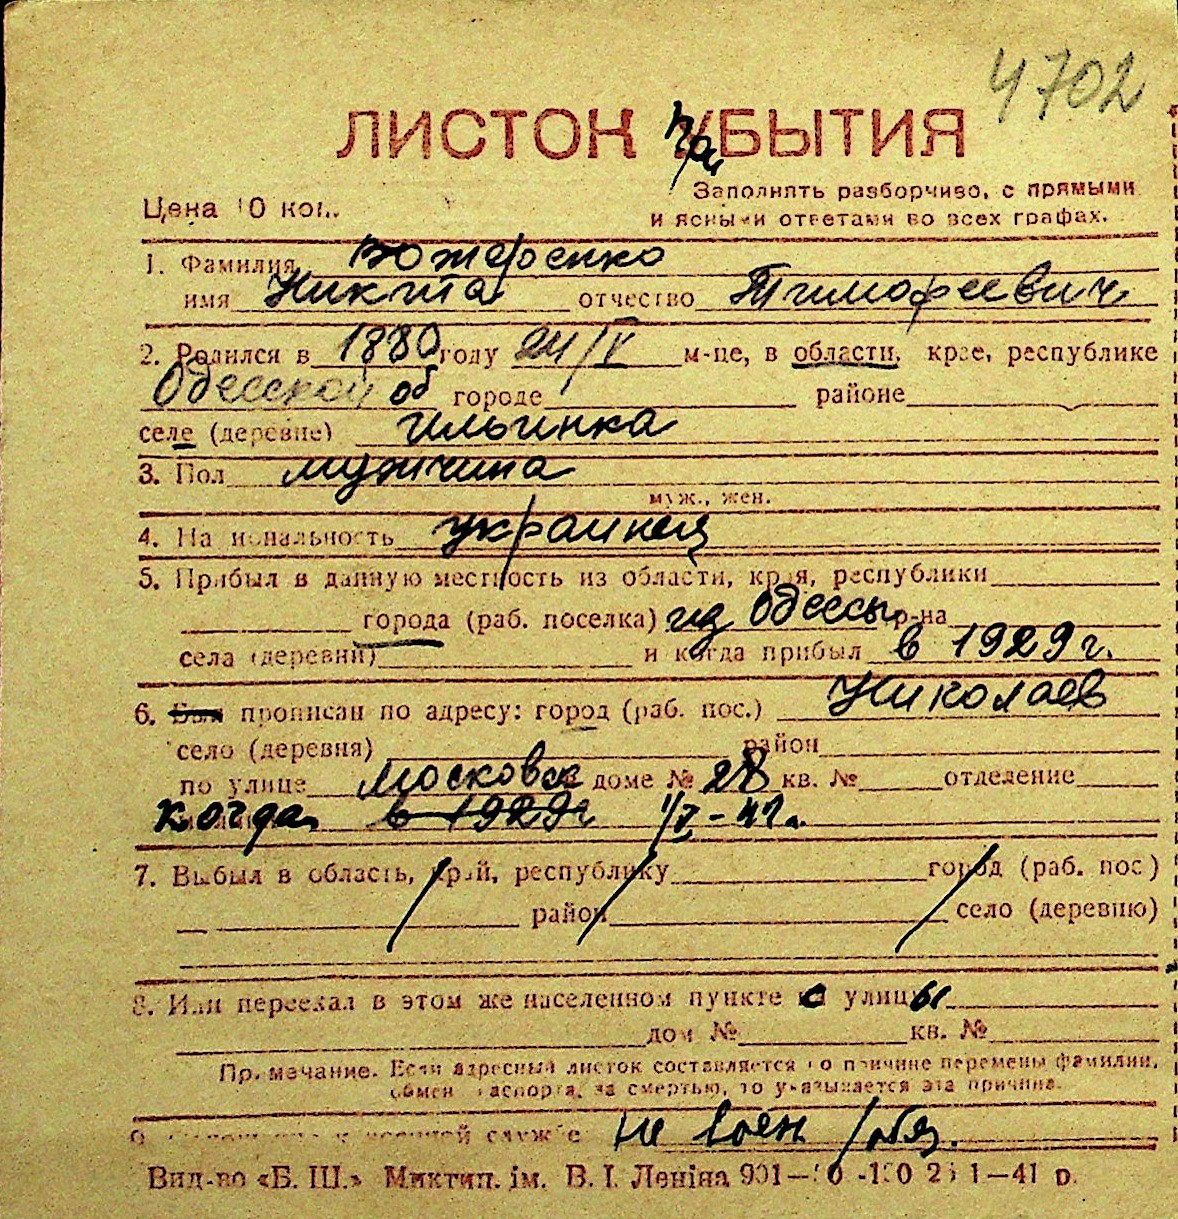 4702
ЛИСТОК при УБЫТИЯ
Цена 10 коп.
Заполнять разборчиво, с прямыми
и ясными ответами во всех графах.
1. Фамилия Божеренко
имя Никита отчество Тимофеевич
2. Родился в 1880 году 24/V м-це, в области, крае, республике
Одесской об городе районе
селе (деревне) Ильинка
3. Пол мужчина
муж., жен.
4. Национальность украинец
5. Прибыл в данную местность из области, края, республики
города (раб. поселка) из Одессы р-на
села (деревни) и когда прибыл в 1929 г.
6. Был прописан по адресу: город (раб. пос.) Николаев
село (деревня) район
по улице Московск доме № 28 кв. № отделение
когда в 1929г 1/V-41г.
7. Выбыл в область, край, республику город (раб. пос)
район село (деревню)
8. Или переехал в этом же населенном пункте с улицы
дом № кв. №
Примечание. Если адресный листок составляется по причине перемены фамилии,
обмен паспорта, за смертью, то указывается эта причина.
9. к военной службе не воен/обяз.
Вид-во «Б. Ш.» Миктип. ім. В. І. Леніна 901— 1—41 р.